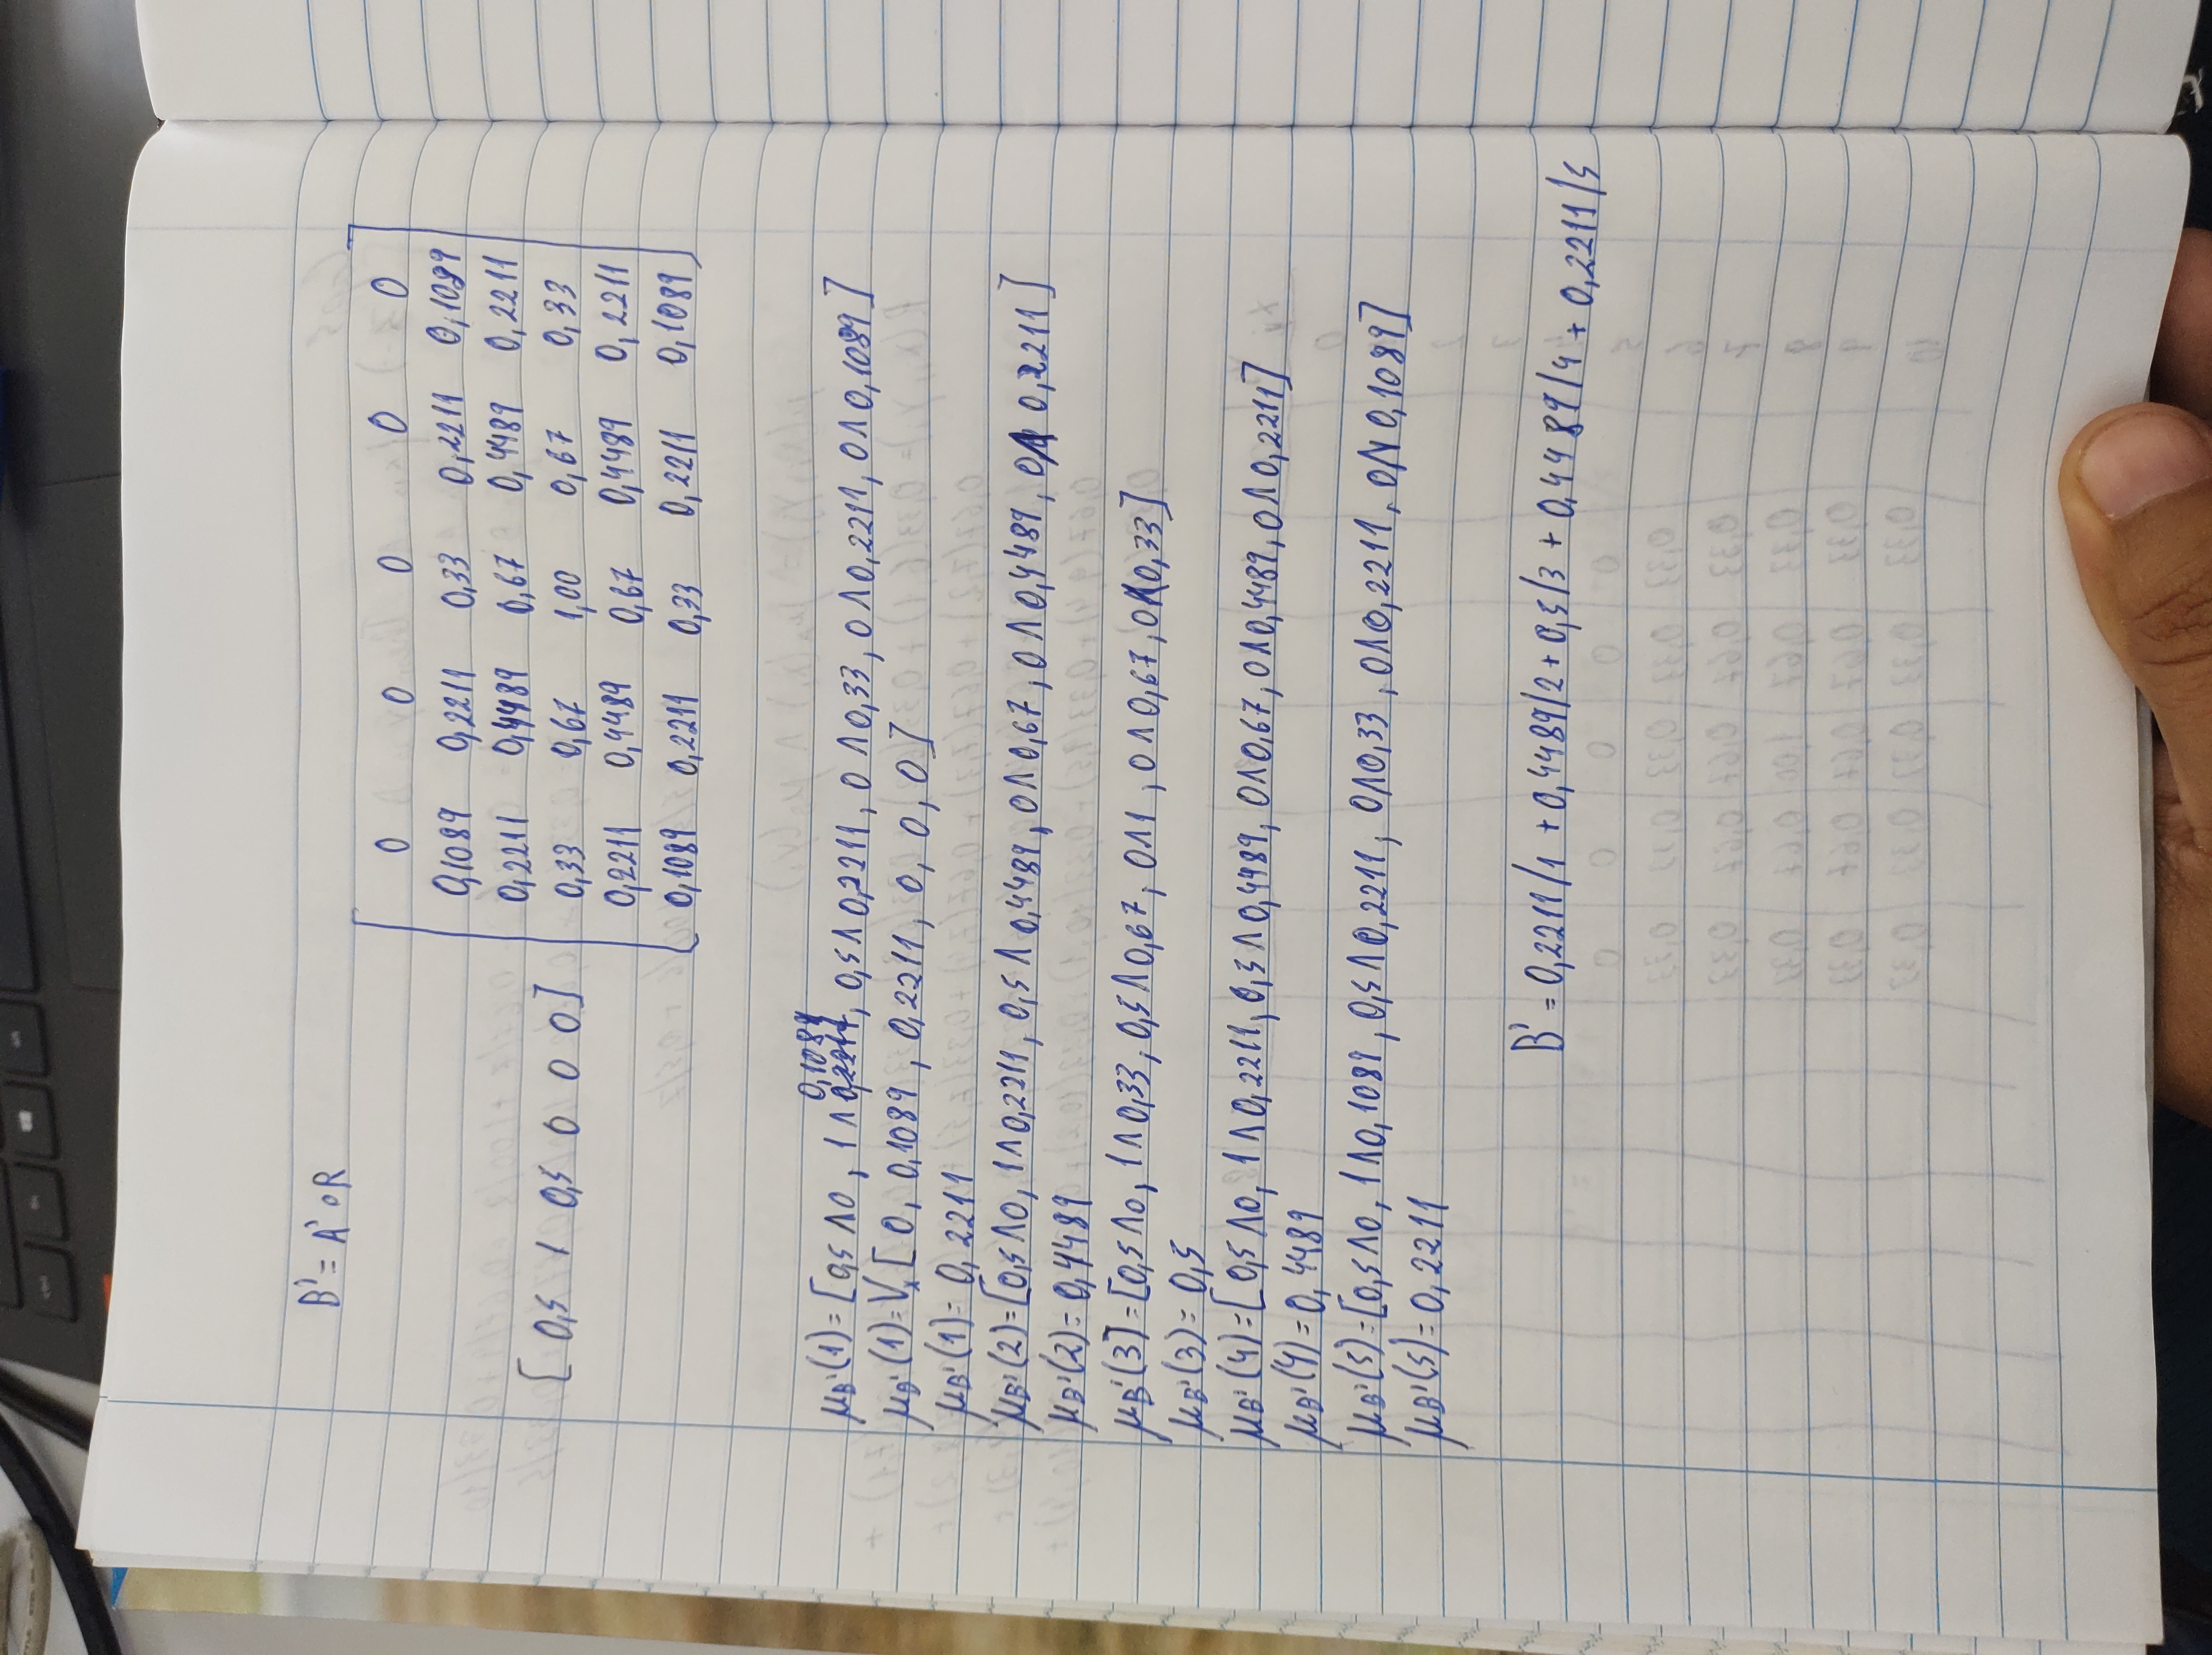 B' = A' ∘ R
0 0 0 0 0
0,1089 0,2211 0,33 0,2211 0,1089
0,2211 0,4489 0,67 0,4489 0,2211
[ 0,5 1 0,5 0 0 0 ]
0,33 0,67 1,00 0,67 0,33
0,2211 0,4489 0,67 0,4489 0,2211
0,1089 0,2211 0,33 0,2211 0,1089
0,1089
μB'(1) = [0,5 ∧ 0 , 1 ∧ 0,2211, 0,5 ∧ 0,2211, 0 ∧ 0,33, 0 ∧ 0,2211, 0 ∧ 0,1089]
μB'(1) = Vx [ 0, 0,1089 , 0,2211, 0, 0, 0]
μB'(1) = 0,2211
μB'(2) = [0,5 ∧ 0, 1 ∧ 0,2211, 0,5 ∧ 0,4489, 0 ∧ 0,67, 0 ∧ 0,4489, 0 ∧ 0,2211]
μB'(2) = 0,4489
μB'(3] = [0,5 ∧ 0, 1 ∧ 0,33, 0,5 ∧ 0,67, 0 ∧ 1 , 0 ∧ 0,67, 0 ∧ 0,33]
μB'(3) = 0,5
μB'(4) = [ 0,5 ∧ 0, 1 ∧ 0,2211, 0,5 ∧ 0,4489, 0 ∧ 0,67, 0 ∧ 0,4489, 0 ∧ 0,2211]
μB'(4) = 0,4489
μB'(5) = [0,5 ∧ 0, 1 ∧ 0,1089, 0,5 ∧ 0,2211, 0 ∧ 0,33, 0 ∧ 0,2211, 0 ∧ 0,1089]
μB'(5) = 0,2211
B' = 0,2211/1 + 0,4489/2 + 0,5/3 + 0,4489/4 + 0,2211/5